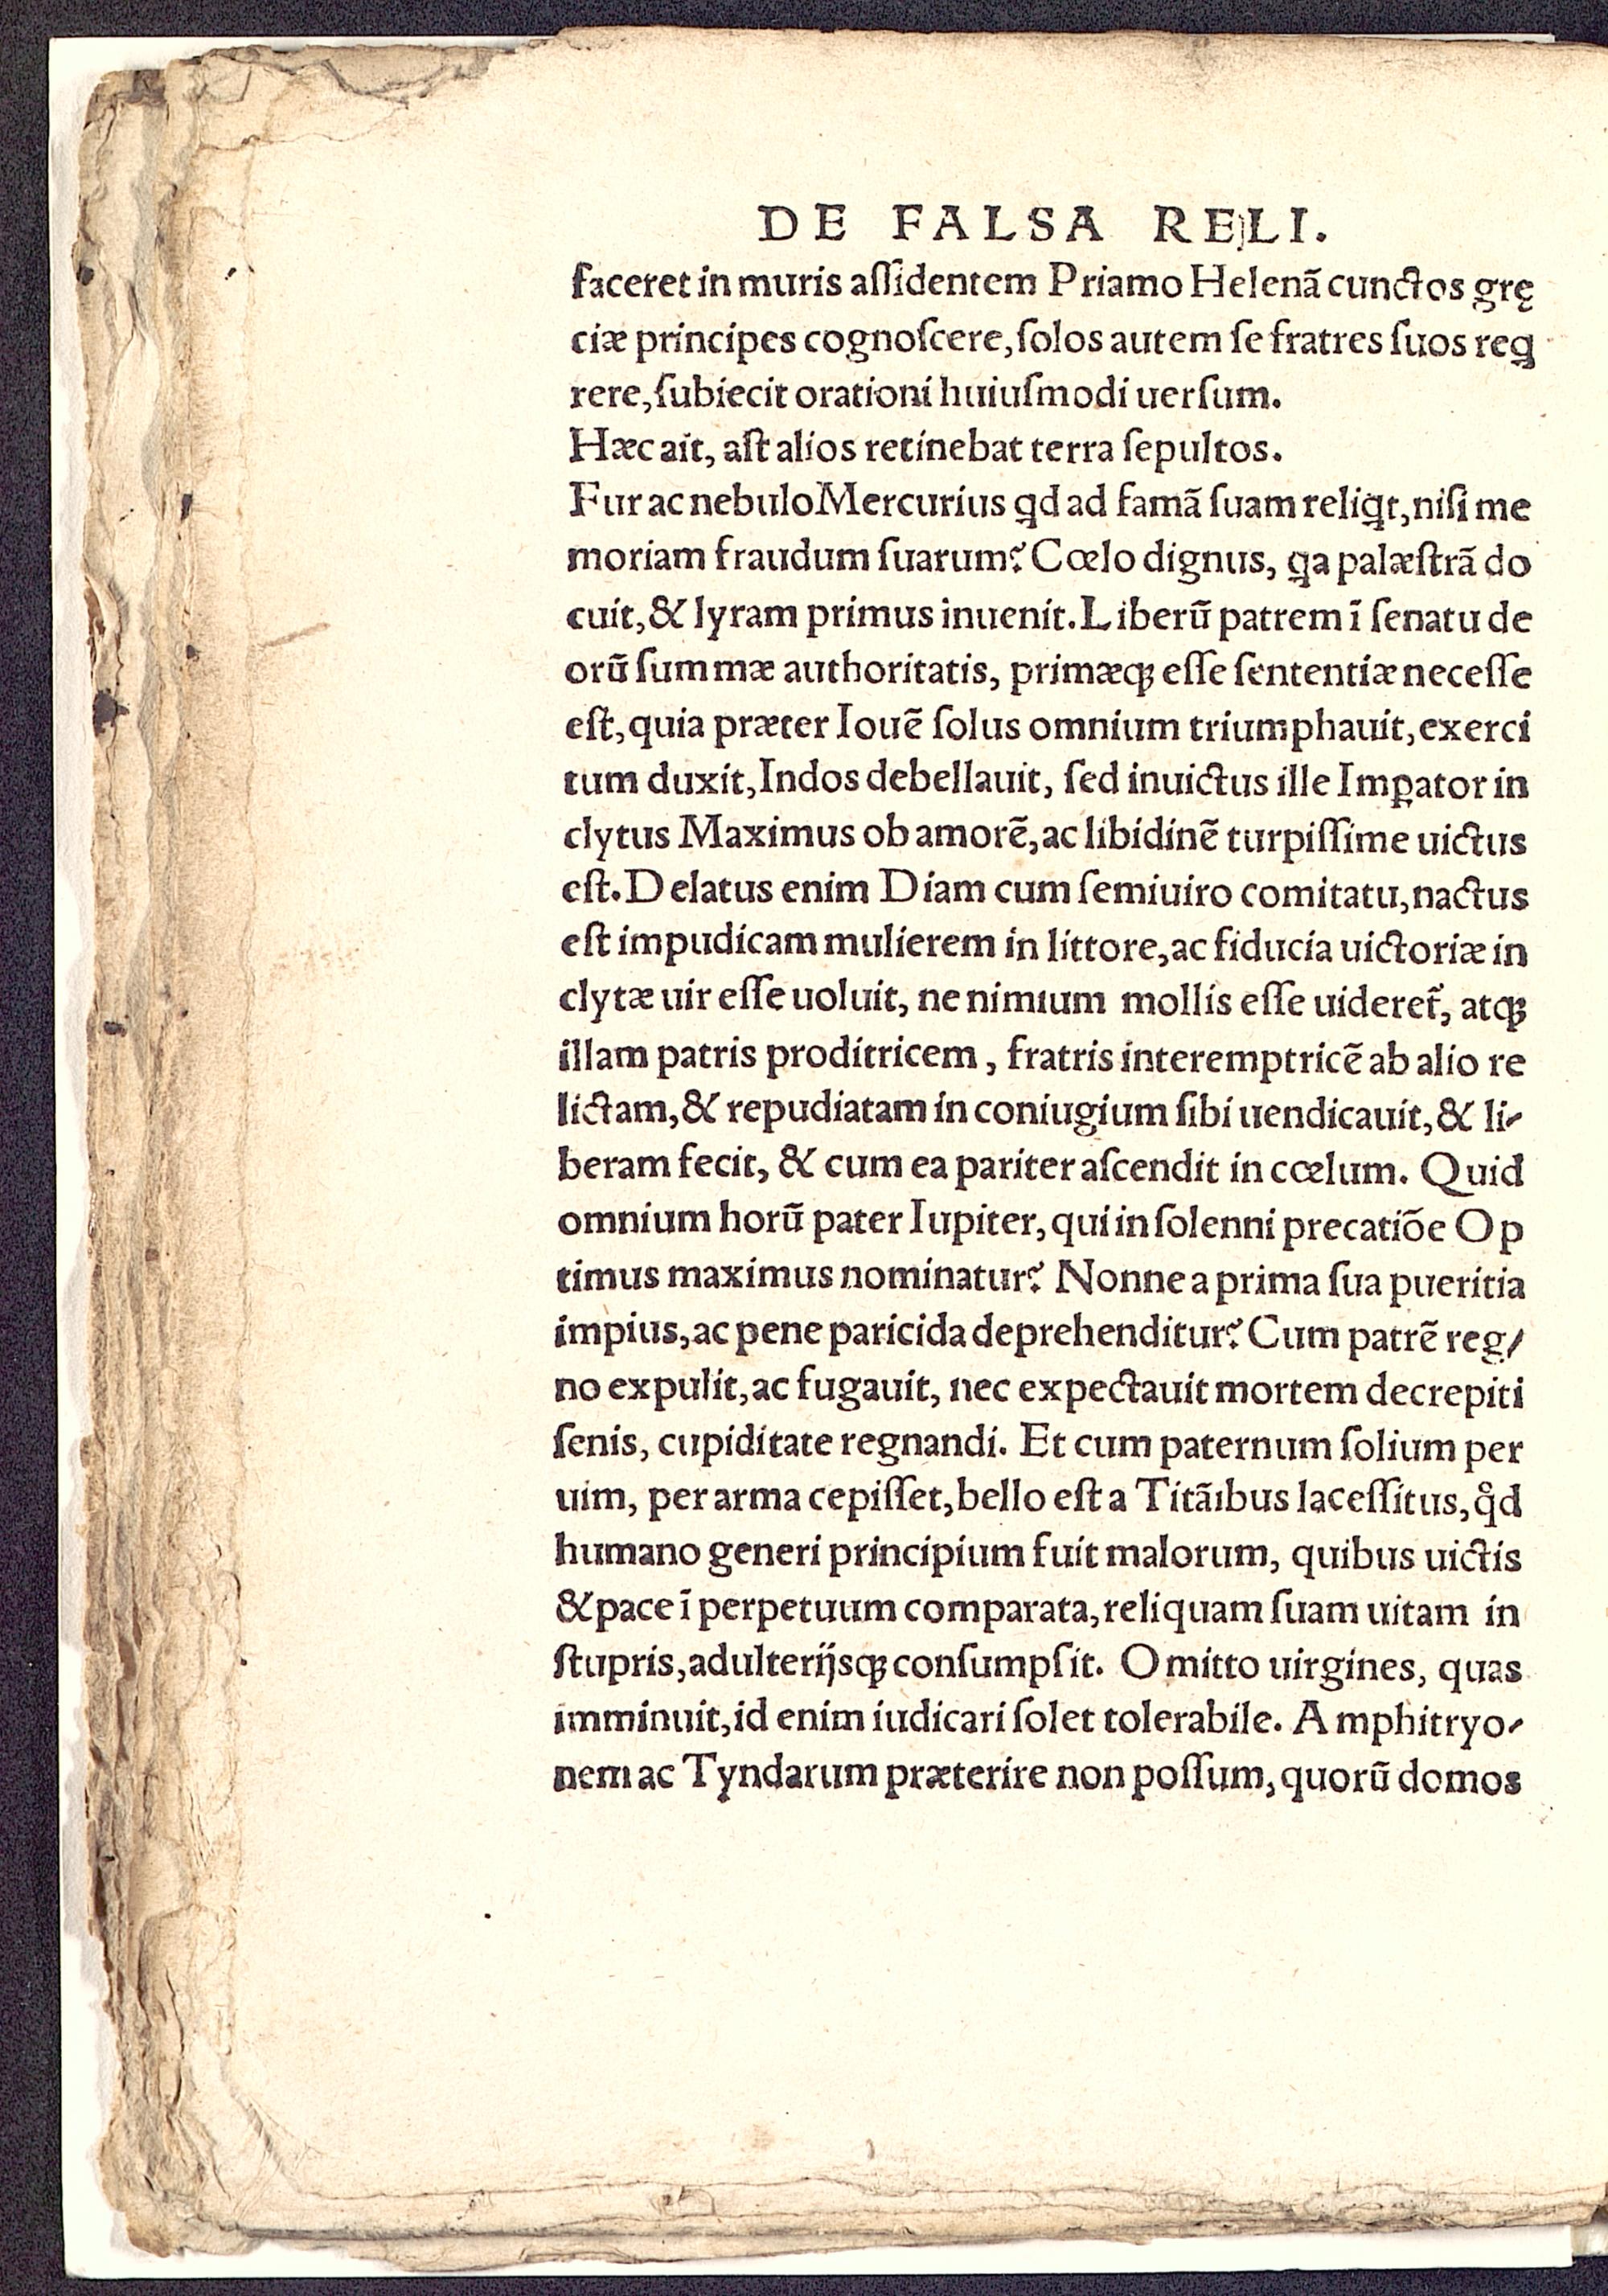 DE FALSA RELI.
faceret in muris aſſidentem Priamo Helenã cunctos grę
ciæ principes cognoſcere, ſolos autem ſe fratres ſuos reꝗ
rere, ſubiecit orationi huiuſmodi uerſum.
Hæc ait, aſt alios retinebat terra ſepultos.
Fur ac nebulo Mercurius ꝗd ad famã ſuam reliꝗt, niſi me
moriam fraudum ſuarum? Cœlo dignus, ꝗa palæſtrã do
cuit, & lyram primus inuenit. Liberũ patrem ĩ ſenatu de
orũ ſummæ authoritatis, primæqꝫ eſſe ſententiæ neceſſe
eſt, quia præter Iouẽ ſolus omnium triumphauit, exerci
tum duxit, Indos debellauit, ſed inuictus ille Imꝑator in
clytus Maximus ob amorẽ, ac libidinẽ turpiſſime uictus
eſt. Delatus enim Diam cum ſemiuiro comitatu, nactus
eſt impudicam mulierem in littore, ac fiducia uictoriæ in
clytæ uir eſſe uoluit, ne nimium mollis eſſe uideret̃, atqꝫ
illam patris proditricem, fratris interemptricẽ ab alio re
lictam, & repudiatam in coniugium ſibi uendicauit, & li-
beram fecit, & cum ea pariter aſcendit in cœlum. Quid
omnium horũ pater Iupiter, qui in ſolenni precatiõe Op
timus maximus nominatur? Nonne a prima ſua pueritia
impius, ac pene paricida deprehenditur? Cum patrẽ reg/
no expulit, ac fugauit, nec expectauit mortem decrepiti
ſenis, cupiditate regnandi. Et cum paternum ſolium per
uim, per arma cepiſſet, bello eſt a Titãibus laceſſitus, qͦd
humano generi principium fuit malorum, quibus uictis
& pace ĩ perpetuum comparata, reliquam ſuam uitam in
ſtupris, adulterijsqꝫ conſumpſit. Omitto uirgines, quas
imminuit, id enim iudicari ſolet tolerabile. Amphitryo-
nem ac Tyndarum præterire non poſſum, quorũ domos